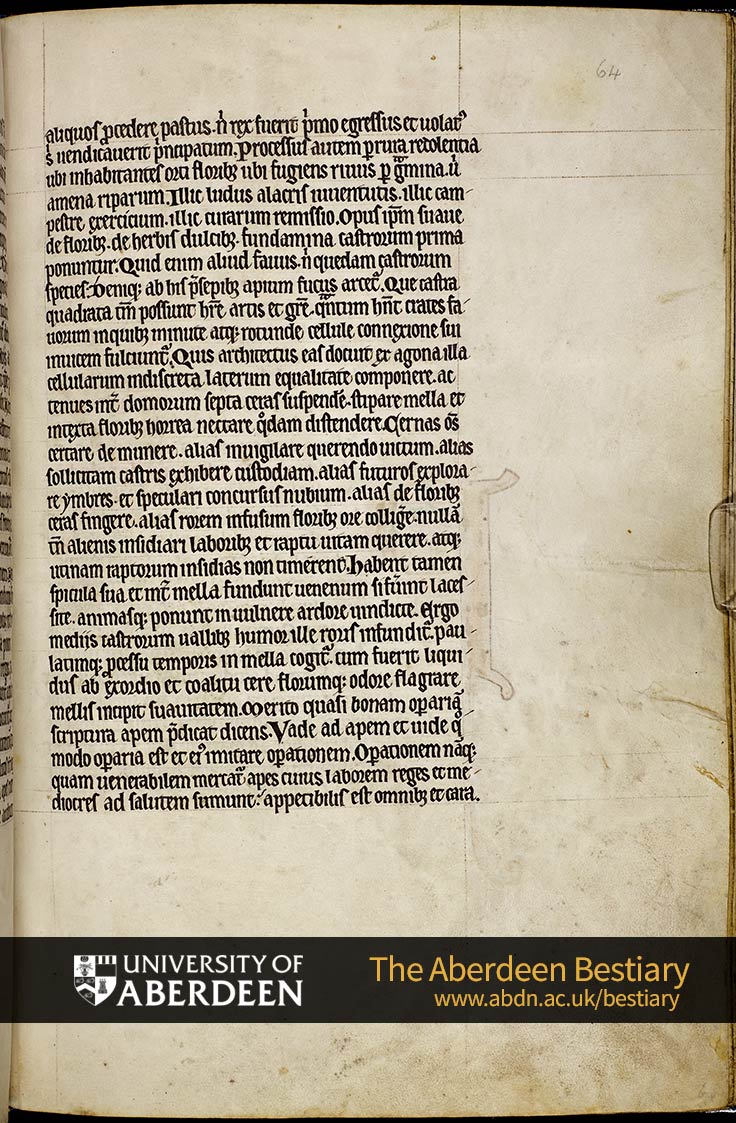 64
aliquos ꝓcedere pastus. n̄ rex fuerit p̍mo egressus et uolat᷒
s̍ uendicauerit p̍ncipatum. Processus autem ꝑ rura redolentia
ubi inhabitantes orti floribꝫ ubi fugiens riuus ꝑ gᷓmina. u̍
amena riparum. Illic ludus alacris iuuentutis. illic cam-
pestre exercicium. illic curarum remissio. Opus ip̄m suaue
de floribꝫ. de herbis dulcibꝫ. fundamina castrorum prima
ponuntur. Quid enim aliud fauus. n̍ quedam castrorum
species? Deniqꝫ ab his p̄sepibꝫ apium fucus arcet᷒. Que castra
quadrata tm̄ possunt hr̄e artis et gr̄e. qᷓntum hn̄t crates fa-
uorum in quibꝫ minute atqꝫ rotunde cellule connexione sui
inuicem fulciunt᷒. Quis architectus eas docuit exagona illa
cellularum indiscreta laterum equalitate componere. ac
tenues int̄ domorum septa ceras suspendē. stipare mella et
intexta floribꝫ horrea nectare qͦdam distendere. Cernas om̄s
certare de munere. alias inuigilare querendo uictum. alias
sollicitam castris exhibere custodiam. alias futuros explora-
re ymbres. et speculari concursus nubium. alias de floribꝫ
ceras fingere. alias rorem infusum floribꝫ ore colligē. nullā
tn̄ alienis insidiari laboribꝫ et raptu uitam querere. atqꝫ
utinam raptorum insidias non timerent. Habent tamen
spicula sua et int̄ mella fundunt uenenum si fu̍int laces-
site. animasqꝫ ponunt in uulnere ardore uindicte. Ergo
mediis castrorum uallibꝫ humor ille roris infundit᷒. pau-
latimqꝫ ꝓcessu temporis in mella cogit᷒. cum fuerit liqui-
dus ab exordio et coalitu cere florumqꝫ odore flagrare
mellis incipit suauitatem. Merito quasi bonam oꝑariā
scriptura apem p̄dicat dicens. Vade ad apem et uide qͦ
modo oꝑaria est et ei᷒ imitare oꝑationem. Oꝑationem nāqꝫ
quam uenerabilem mercat᷒ apes cuius laborem reges et me-
diocres ad salutem sumunt? appetibilis est omnibꝫ et cara.
UNIVERSITY OF
ABERDEEN
The Aberdeen Bestiary
www.abdn.ac.uk/bestiary